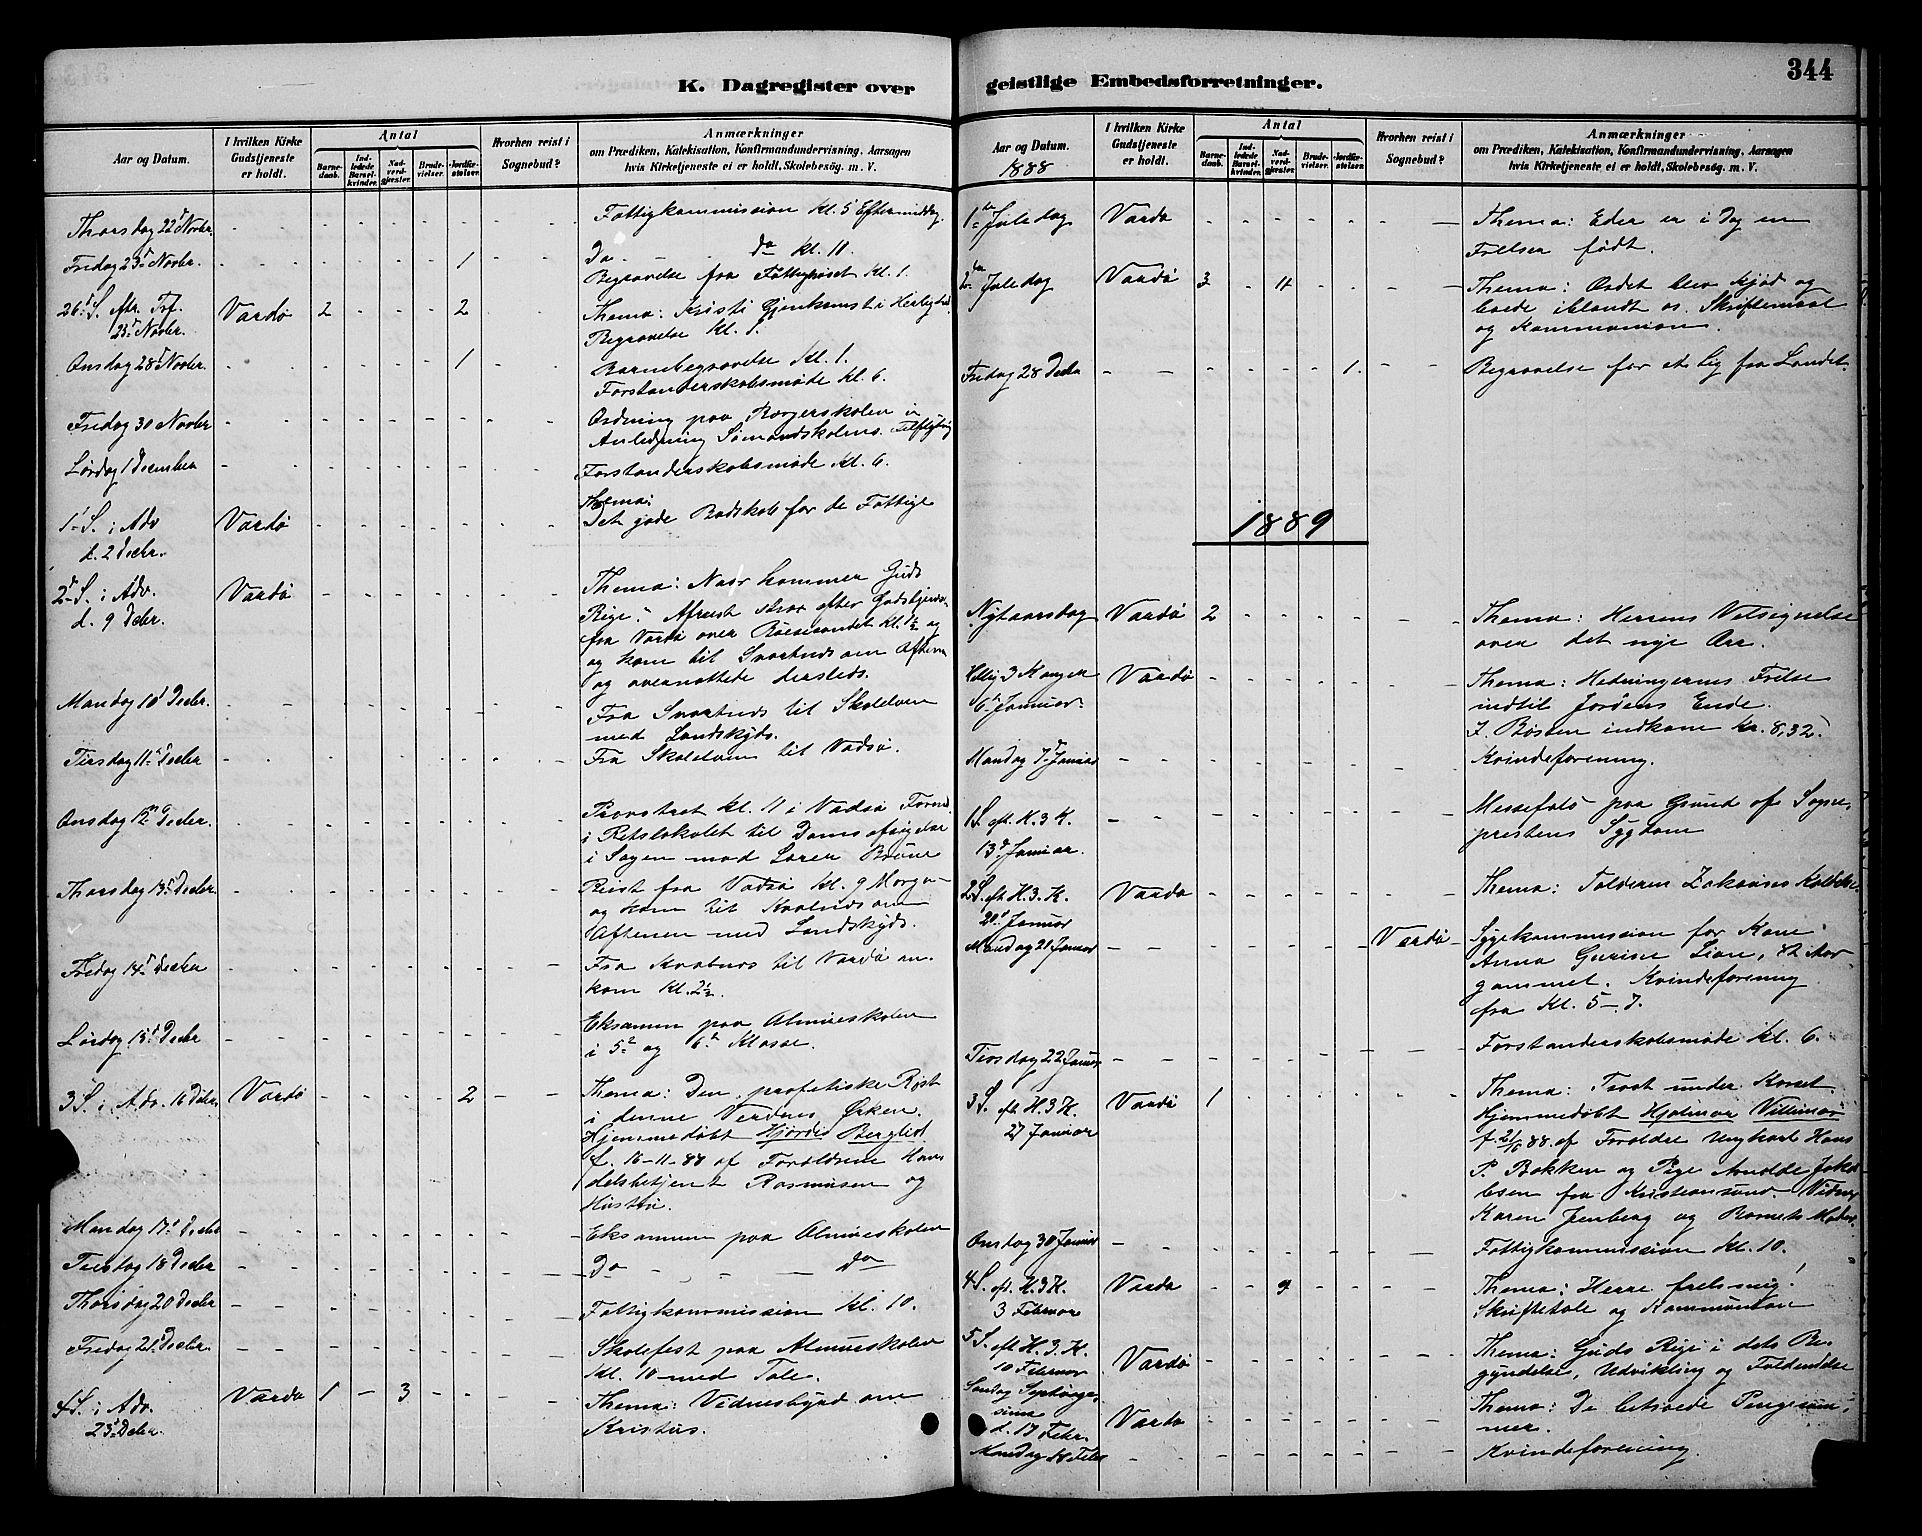 K. Dagregister over
Aar og Datum.
I hvilken Kirke Gudstjeneste er holdt.
Antal
Barnedaab.
Indledede Barselkvinder.
Nadverdgjæster.
Brudevielser.
Jordfæstelser.
Hvorhen reist i Sognebud?
Anmærkninger
om Prædiken, Katekisation, Konfirmandundervisning, Aarsagen
hvis Kirketjeneste ei er holdt, Skolebesøg. m. V.
Thorsdag 22 Novbr. Fattigkommission kl. 5 Eftermiddag.
Fredag 23 Novbr. 1 Do do kl. 11.
Begravelse fra Fattighuset kl. 1.
26 S. eftr. Tref. Vardø 2 2 Thema: Kristi Gjenkomst i Herlighed
25 Novbr. Begravelse kl. 1.
Onsdag 28 Novbr. 1 Barnebegravelse kl. 1.
Forstanderskabsmøde kl. 6.
Fredag 30 Novbr Ordning paa Borgerskolen i
Anledning Sømandsskolens
Lørdag 1 December Forstanderskabsmøde kl. 6.
1 S. i Adv Vardø Thema:
d. 2 Decbr. Det gode Budskab for de Fattige
2 S. i Adv. Vardø Thema: Naar kommer Guds
d. 9 Decbr. Rige. Afreist strax efter Gudstjeneste
fra Vardø over Bussesundet kl. 1½ og
og kom til Svartnes om Aftenen
og overnattede dersteds.
Mandag 10 Decbr. Fra Svartnes til Skalelven
med Landskyds.
Tirsdag 11 Decbr Fra Skalelven til Vadsø.
Onsdag 12 Decbr. Provsteret kl. 11 i Vadsø
i Retslokalet til Domsafsigelse
i Sagen mod
Thorsdag 13 Decbr Reist fra Vadsø kl. 9 Morgen
og kom til Krabnes om
Aftenen med Landskyds.
Fredag 14 Decbr Fra Krabnes til Vardø an-
kom kl. 2½.
Lørdag 15 Decbr Eksamen paa Almueskolen
i 5te og 6te Klasse.
3 S. i Adv. 16 Decbr. Vardø 2 Thema: Den profetiske Røst
i denne Verdens Ørken.
Hjemmedøbt Hjørdis Bergliot
f. 16-11-88 af Forældrene Han-
delsbetjent Rasmussen og
Hustru.
Mandag 17 Decbr Eksamen paa Almueskolen
Tirsdag 18 Decbr Do do
Thorsdag 20 Decbr Fattigkommission kl. 10.
Fredag 21 Decbr. Skolefest paa Almueskolen
kl. 10 med Tale.
4 S. i Adv. Vardø 1 3 Thema: Vidnesbyrd om
23 Decbr. Kristus.
344
geistlige Embedsforretninger.
Aar og Datum.
1888
I hvilken Kirke Gudstjeneste er holdt.
Antal
Barnedaab.
Indledede Barselkvinder.
Nadverdgjæster.
Brudevielser.
Jordfæstelser.
Hvorhen reist i Sognebud?
Anmærkninger
om Prædiken, Katekisation, Konfirmandundervisning, Aarsagen
hvis Kirketjeneste ei er holdt, Skolebesøg. m. V.
1ste Juledag Vardø Thema: Eder er i Dag en
Frelser født.
2den Juledag Vardø 3 4 Thema: Ordet blev Kjød og
boede iblandt os. Skriftemaal
og Kommunion.
Fredag 28 Decbr 1. Begravelse for et Lig fra Landet
1889
Nytaarsdag Vardø 2 Thema: Herrens Velsignelse
over det nye Aar.
Hellig 3 Konger Vardø Thema: Hedningernes Frelse
6 Januar. indtil Jordens Ende.
I Bøssen indkom kr. 8,32.
Mandag 7 Januar Kvindeforening.
1 S. eft. H. 3 K. Messefald paa Grund af Sogne-
13 Januar. prestens Sygdom
2 S. eft. H. 3. K. Vardø Thema: Tolderen Zakæus Kaldelse
20 Januar
Mandag 21 Januar Vardø Sygekommunion for Kone
Anna Gurine Lian, 42 Aar
gammel. Kvindeforening
fra Kl. 5-7.
Tirsdag 22 Januar Forstanderskabsmøde kl. 6.
3 S. eft. H. 3 K. Vardø 1 Thema: Trøst under Korset
27 Januar Hjemmedøbt Hjalmar Villimar
f. 88. af Forældre Ungkarl Hans
P. Bakken og Pige
fra Kristiansund. Vidner
Karen og Barnets Moder.
Onsdag 30 Januar Fattigkommission kl. 10.
4 S. eft. H. 3 K. Vardø 9 Thema: Herre frels mig!
3 Februar Skriftetale og Kommunion
5 S. eft. H. 3. K. Vardø Thema: Guds Rige i dets Be-
10 Februar gyndelse, Udvikling og Fuldendelse
Søndag Septuage- Vardø Thema: De betroede Pengesum-
sima mer.
d. 17 Febr.
Mandag 18 Febr Kvindeforening.